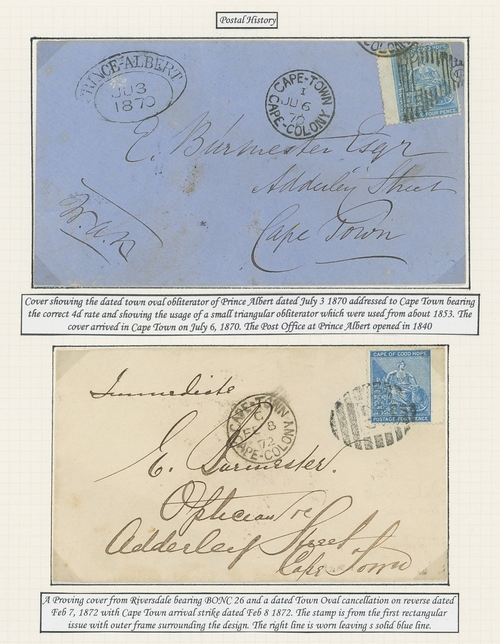 Postal History
PRINCE-ALBERT
JU 3
1870
CAPE-TOWN
1
JU 6
70
CAPE-COLONY
E. Burmester Esqr
Adderley Street
Cape Town
Cover showing the dated town oval obliterator of Prince Albert dated July 3 1870 addressed to Cape Town bearing
the correct 4d rate and showing the usage of a small triangular obliterator which were used from about 1853. The
cover arrived in Cape Town on July 6, 1870. The Post Office at Prince Albert opened in 1840
CAPE OF GOOD HOPE
POSTAGE FOUR PENCE
Immediate
CAPE-TOWN
C
FE 8
72
CAPE-COLONY
E. Burmester.
Optician &c
Adderley Street
Cape Town
A Proving cover from Riversdale bearing BONC 26 and a dated Town Oval cancellation on reverse dated
Feb 7, 1872 with Cape Town arrival strike dated Feb 8 1872. The stamp is from the first rectangular
issue with outer frame surrounding the design. The right line is worn leaving s solid blue line.